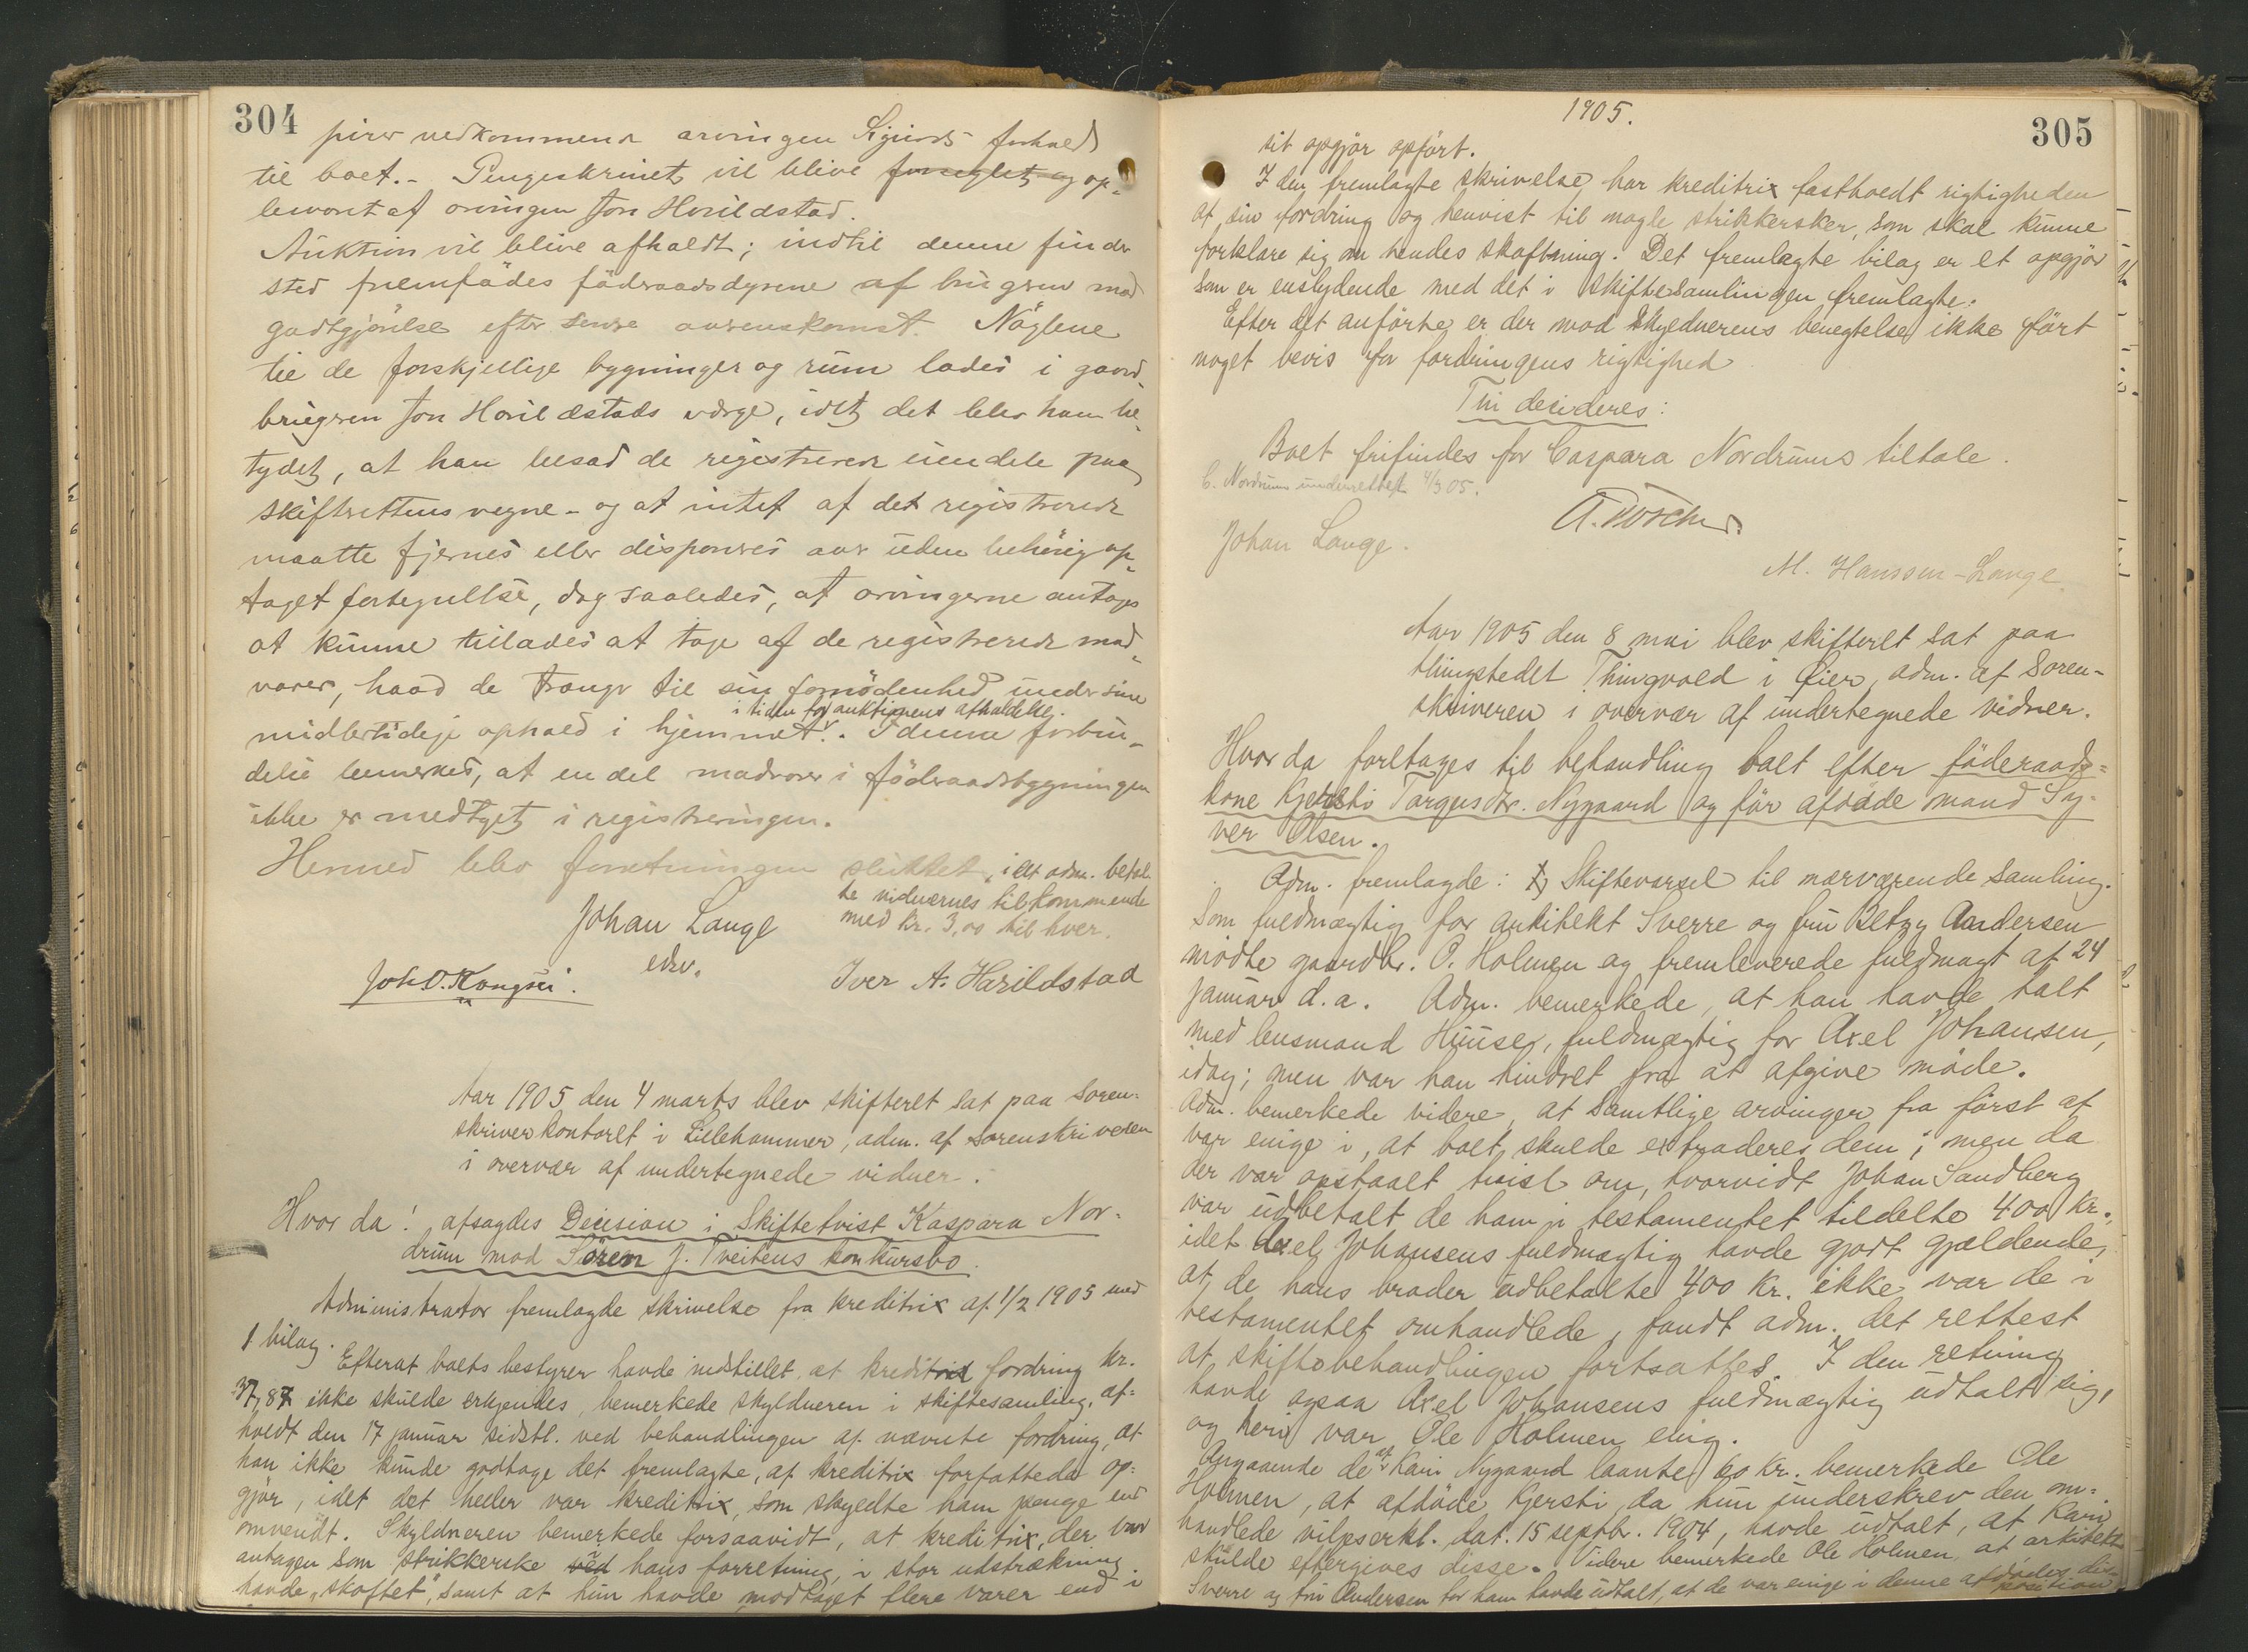 304
pirer vedkommende arvingen Sigurds forhold
til boet. - Pengeskrinet vil blive forseglet og op-
bevaret af arvingen Jon Horildstad.
Auktion vil blive afholdt; indtil denne finder
sted fremfödes föderaadsdyrene af brugeren mod
godtgjörelse efter senere overenskomst. Nöglene
til de forskjellige bygninger og rum lades i gaard-
brugeren Jon Horildstads værge, idet det blev ham be-
tydet, at han besad de registrerede eiendele paa
skifterettens vegne - og at intet af det registrerede
maatte fjernes eller disponeres over uden behörig op-
taget fortegnelse, dog saaledes, at arvingerne antages
at kunne tillades at tage af de registrerede mad-
varer, hvad de trænger til sin fornödenhed under sine
i tiden før auktionens afholdelse.
midlertidige ophold i hjemmet. I denne forbin-
delse bemerkes, at en del madvarer i föderaadsbygningen
ikke er medtaget i registreringen.
Hermed blev forretningen sluttet, idet adm. betal-
te vidnernes tilkommende
med kr. 3,00 til hver.
Johan Lange
edsv.
Joh. O. Kongsli.
Iver A. Harildstad
Aar 1905 den 4 marts blev skifteret sat paa Soren-
skriverkontoret i Lillehammer, adm. af Sorenskriveren
i overvær af undertegnede vidner.
Hvor da: afsagdes Decision i Skiftetvist Kaspara Nor-
drum mod Sören J. Tveitens konkursbo.
Administrator fremlagde skrivelse fra kreditrix af 1/2 1905 med
1 bilag.
Efterat boets bestyrer havde indstillet, at kreditrix fordring kr.
37,87 ikke skulde erkjendes, bemerkede skyldneren i skiftesamling, af-
holdt den 17 januar sidstl. ved behandlingen af nævnte fordring, at
han ikke kunde godtage det fremlagte, af kreditrix forfattede op-
gjör, idet det heller var kreditrix, som skyldte ham penge end
omvendt. Skyldneren bemerkede forsaavidt, at kreditrix, der var
antagen som strikkerske ved hans forretning, i stor udstrækning
havde "skoftet", samt at hun havde modtaget flere varer end i
1905.
305
sit opgjör opfört.
I den fremlagte skrivelse har kreditrix fastholdt rigtigheden
af sin fordring og henvist til nogle strikkersker, som skal kunne
forklare sig om hendes skoftning. Det fremlagte bilag er et opgjör
som er enslydende med det i skiftesamlingen fremlagte.
Efter det anförte er der mod skyldnerens benegtelse ikke fört
noget bevis for fordringens rigtighed
Thi decideres:
Boet frifindes for Caspara Nordrums tiltale.
C. Nordrum underrettet 4/3 05.
Johan Lange.
M. Hanssen-Lange
Aar 1905 den 8 mai blev skifteret sat paa
thingstedet Thingvold i Øier, adm. af Soren-
skriveren i overvær af undertegnede vidner.
Hvor da foretages til behandling boet efter föderaads-
kone Kjersti Torgersdtr. Nygaard og för afdöde mand Sy-
ver Olsen.
Adm. fremlagde: 1) Skiftevarsel til nærværende samling.
Som fuldmægtig for arkitekt Sverre og fru Betzy Andersen
mödte gaardbr. O. Holmen og fremleverede fuldmagt af 24
januar d.a. Adm. bemerkede, at han havde talt
med lensmand Huuse, fuldmægtig for Axel Johansen,
idag; men var han hindret fra at afgive möde.
Adm. bemerkede videre, at samtlige arvinger fra först af
var enige i, at boet skulde extraderes dem; men da
der var opstaaet tvist om, hvorvidt Johan Sandberg
var udbetalt de ham i testamentet tildelte 400 kr.,
idet Axel Johansens fuldmægtig havde gjort gjældende,
at de hans broder udbetalte 400 kr. ikke var de i
testamentet omhandlede, fandt adm. det rettest
at skiftebehandlingen fortsattes. I den retning
havde ogsaa Axel Johansens fuldmægtig udtalt sig,
og heri var Ole Holmen enig.
Angaaende de af Kari Nygaard laante 60 kr. bemerkede Ole
Holmen, at afdöde Kjersti, da hun underskrev den om-
handlede viljeserkl. dat. 15 septbr. 1904, havde udtalt, at Kari
skulde eftergives disse. Videre bemerkede Ole Holmen, at arkitekt
Sverre og fru Andersen for ham havde udtalt, at de var enige i denne afdödes dis-
position